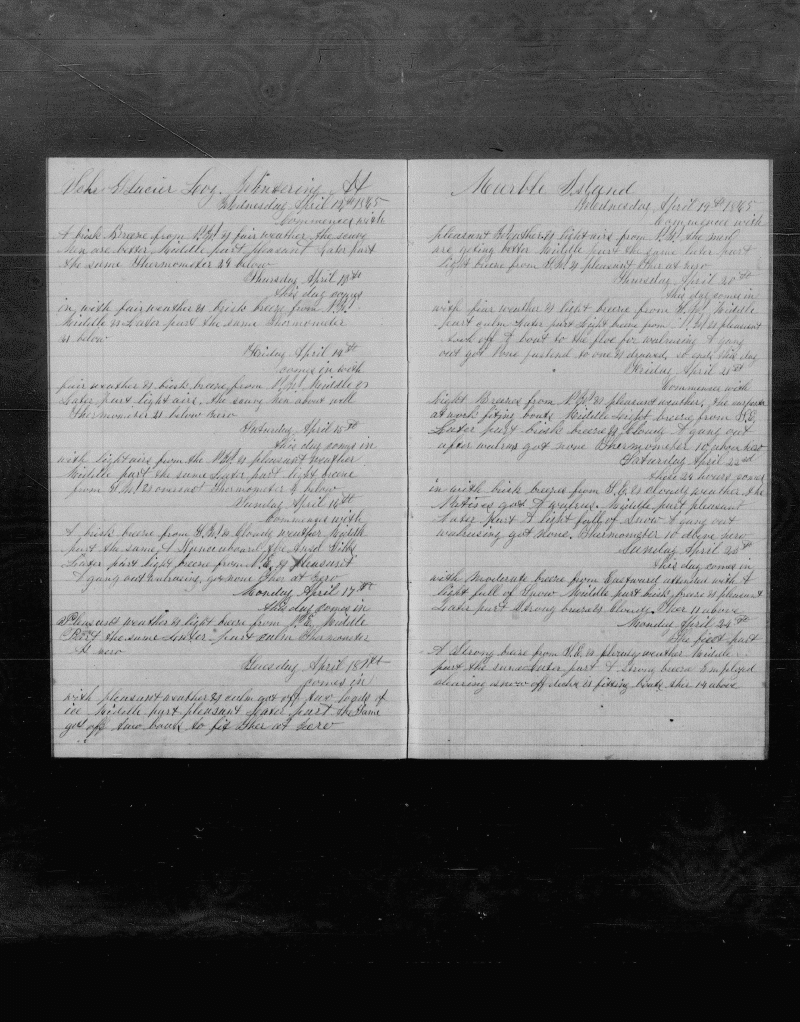 Wintering At
Wednesday April 12th 1865
Commences with
A brisk Breeze from N.W. & fair weather, the scurvy
men are better, Middle part pleasant Later part
the same Thermometer 24 below
Thursday April 13th
This day comes
in with fair weather & brisk breeze from N.W.
Middle & Later part the same Thermometer
below
Friday April 14th
comes in with
fair weather & brisk breeze from N.W. Middle &
Later part light airs, the scurvy men about well
Thermometer below zero
Saturday April 15th
This day comes in
with light airs from the N.W. & pleasant weather
Middle part the same Later part light breeze
from N.W. & overcast Thermometer below
Sunday April 16th
Commences with
A brisk breeze from & Cloudy weather Middle
part the same
Later part light breeze from & pleasant
A gang out walrusing, got none Ther at Zero
Monday April 17th
This day comes in
Pleasant weather & light breeze from Middle
Part the same Later part calm Thermometer
zero
Tuesday April 18th
comes in
with pleasant weather & calm got off two loads of
ice Middle part pleasant Later part the same
got off two boats to fix Ther at Zero
Marble Island
Wednesday April 19th 1865
Commences with
pleasant Weather & light airs from N.W. the men
are geting better Middle part the same later part
light breeze from & pleasant Ther at Zero
Thursday April 20th
This day comes in
with fair weather & light breeze from Middle
part calm Later part Light breeze from & pleasant
took off A boat to the floe for walrusing A gang
out got None so ends this day
Friday April 21st
Commences with
light Breeze from N.W. & pleasant weather, the carpenter
at work fixing boats Middle light breeze from
Later part brisk breeze & cloudy A gang out
after walrus got none Thermometer 10 above zero
Saturday April 22nd
these 24 hours comes
in with brisk breeze from & cloudy weather the
Natives got A walrus. Middle part pleasant
Later part A light fall of Snow A gang out
walrusing got none. Thermometer 10 above zero
Sunday April 23th
this day comes in
with Moderate breeze from Eastward attended with A
light fall of Snow Middle part brisk breeze & pleasant
Later part Strong breeze & cloudy Ther 11 above
Monday April 24th
The first part
A Strong breeze from weather Middle
part the same Later part A strong breeze Employed
clearing snow off deck & fitting boats Ther 14 above